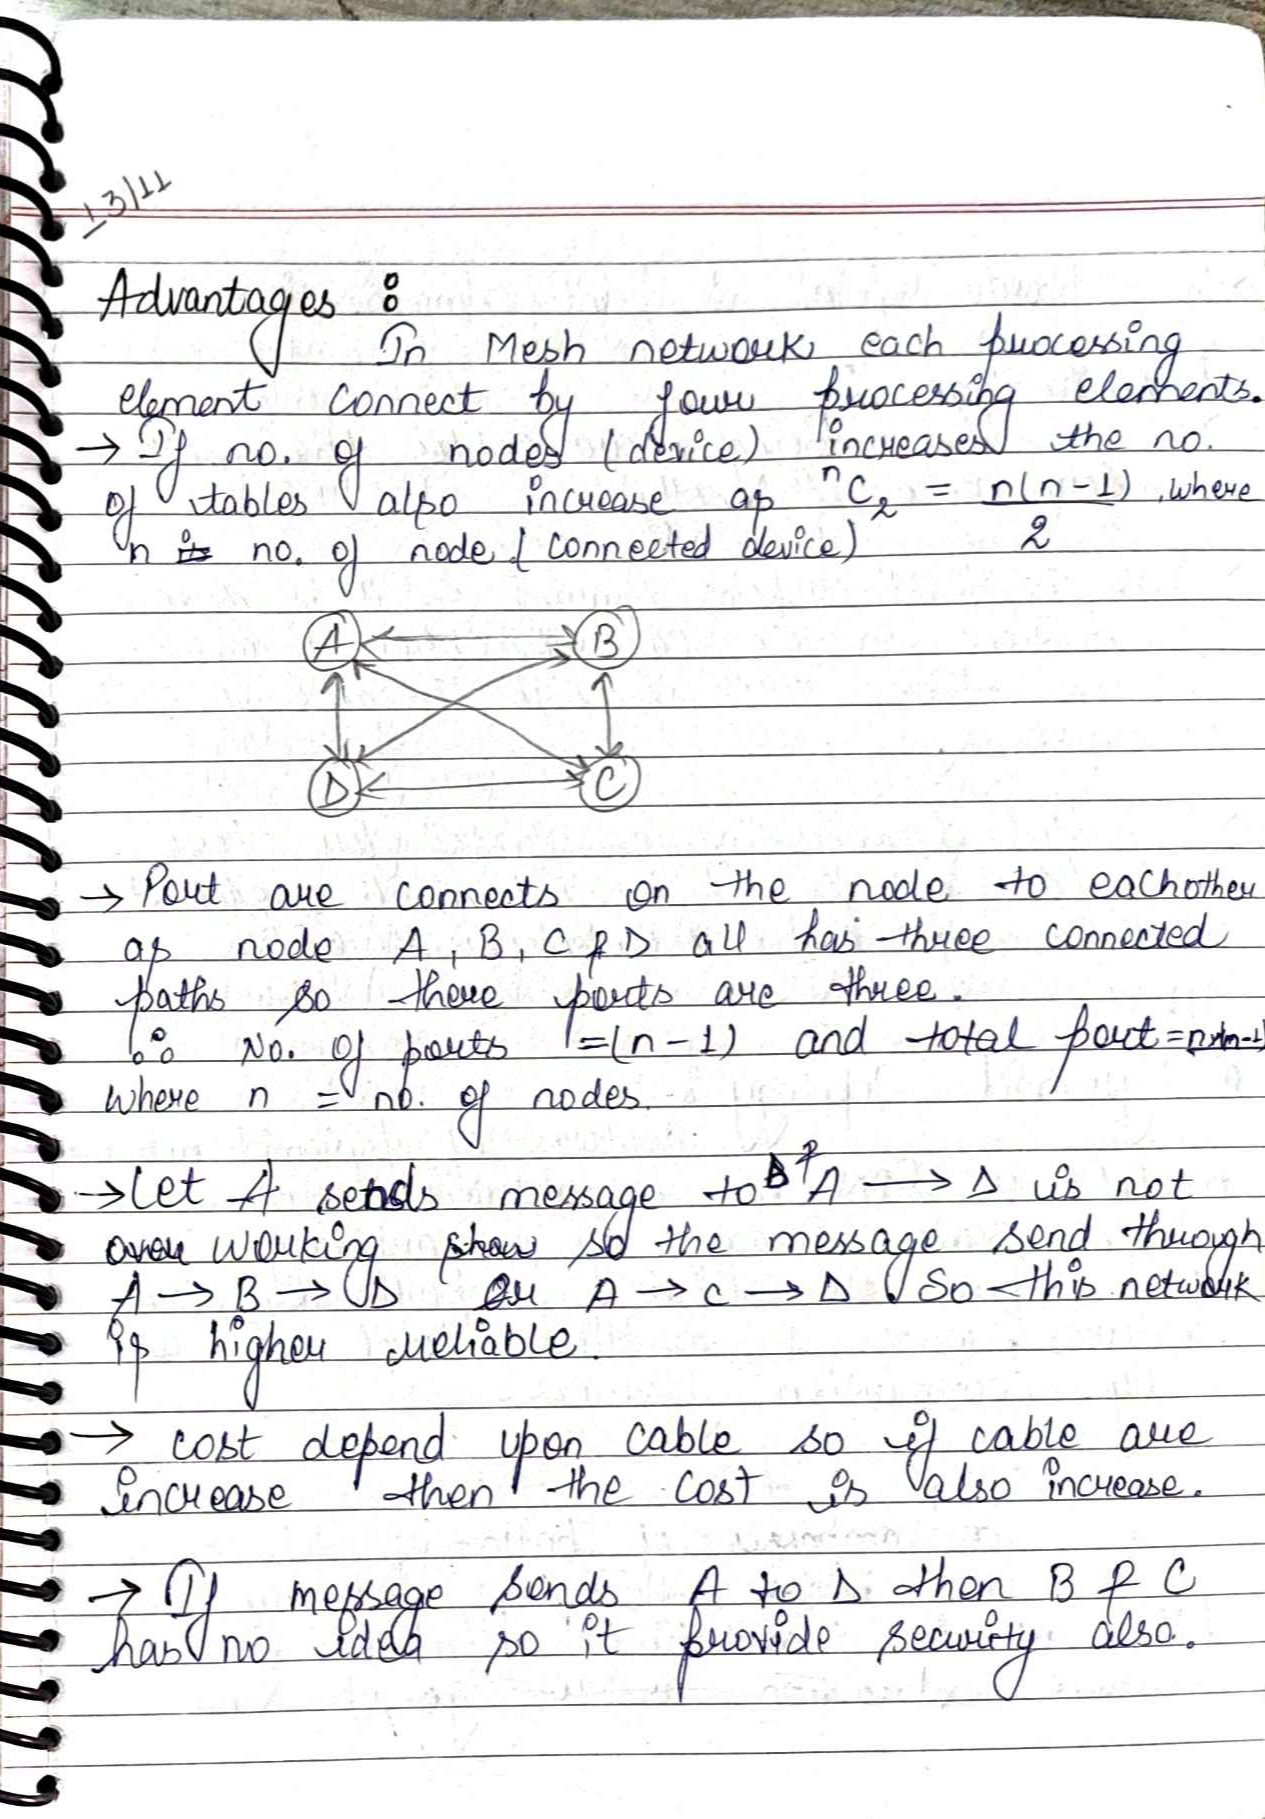 13/11
Advantages :
In Mesh network, each processing
element connect by four processing elements.
→ If no. of nodes (device) increases the no.
of tables also increase as ⁿC₂ = n(n-1)/2, where
n is no. of node (connected device)
A B
D C
→ Port are connects on the node to eachother
as node A, B, C & D all has three connected
paths so there ports are three.
∴ No. of ports = (n-1) and total port = n×(n-1)
where n = no. of nodes.
→ Let A sends message to D & A → D is not
working so the message send through
A → B → D or A → C → D. So this network
is higher reliable.
→ cost depend upon cable so if cable are
increase then the cost is also increase.
→ If message sends A to D then B & C
has no idea so it provide security also.